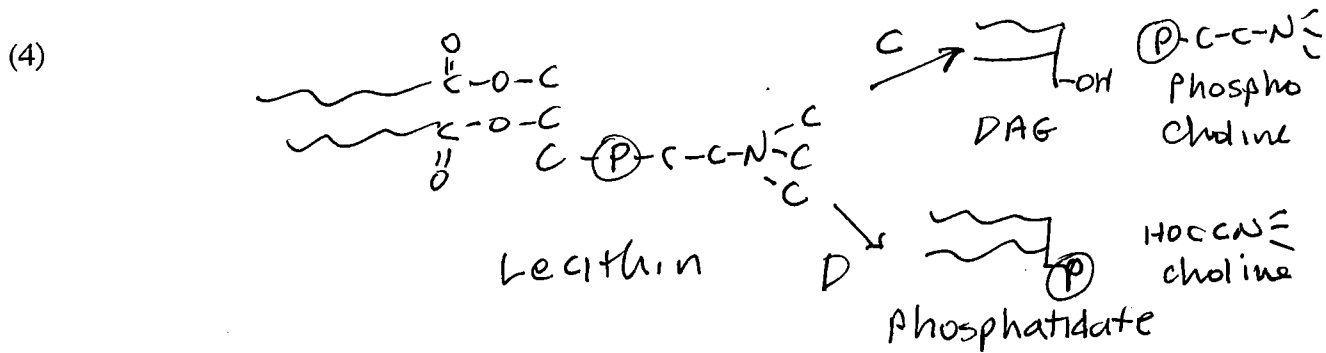 (4)
O
||
C-O-C
C-O-C
||
O
C-(P)-C-C-N
C
C
C
Lecithin
C
-OH
DAG
(P)-C-C-N
Phospho
choline
D
(P)
Phosphatidate
HOCCN
choline